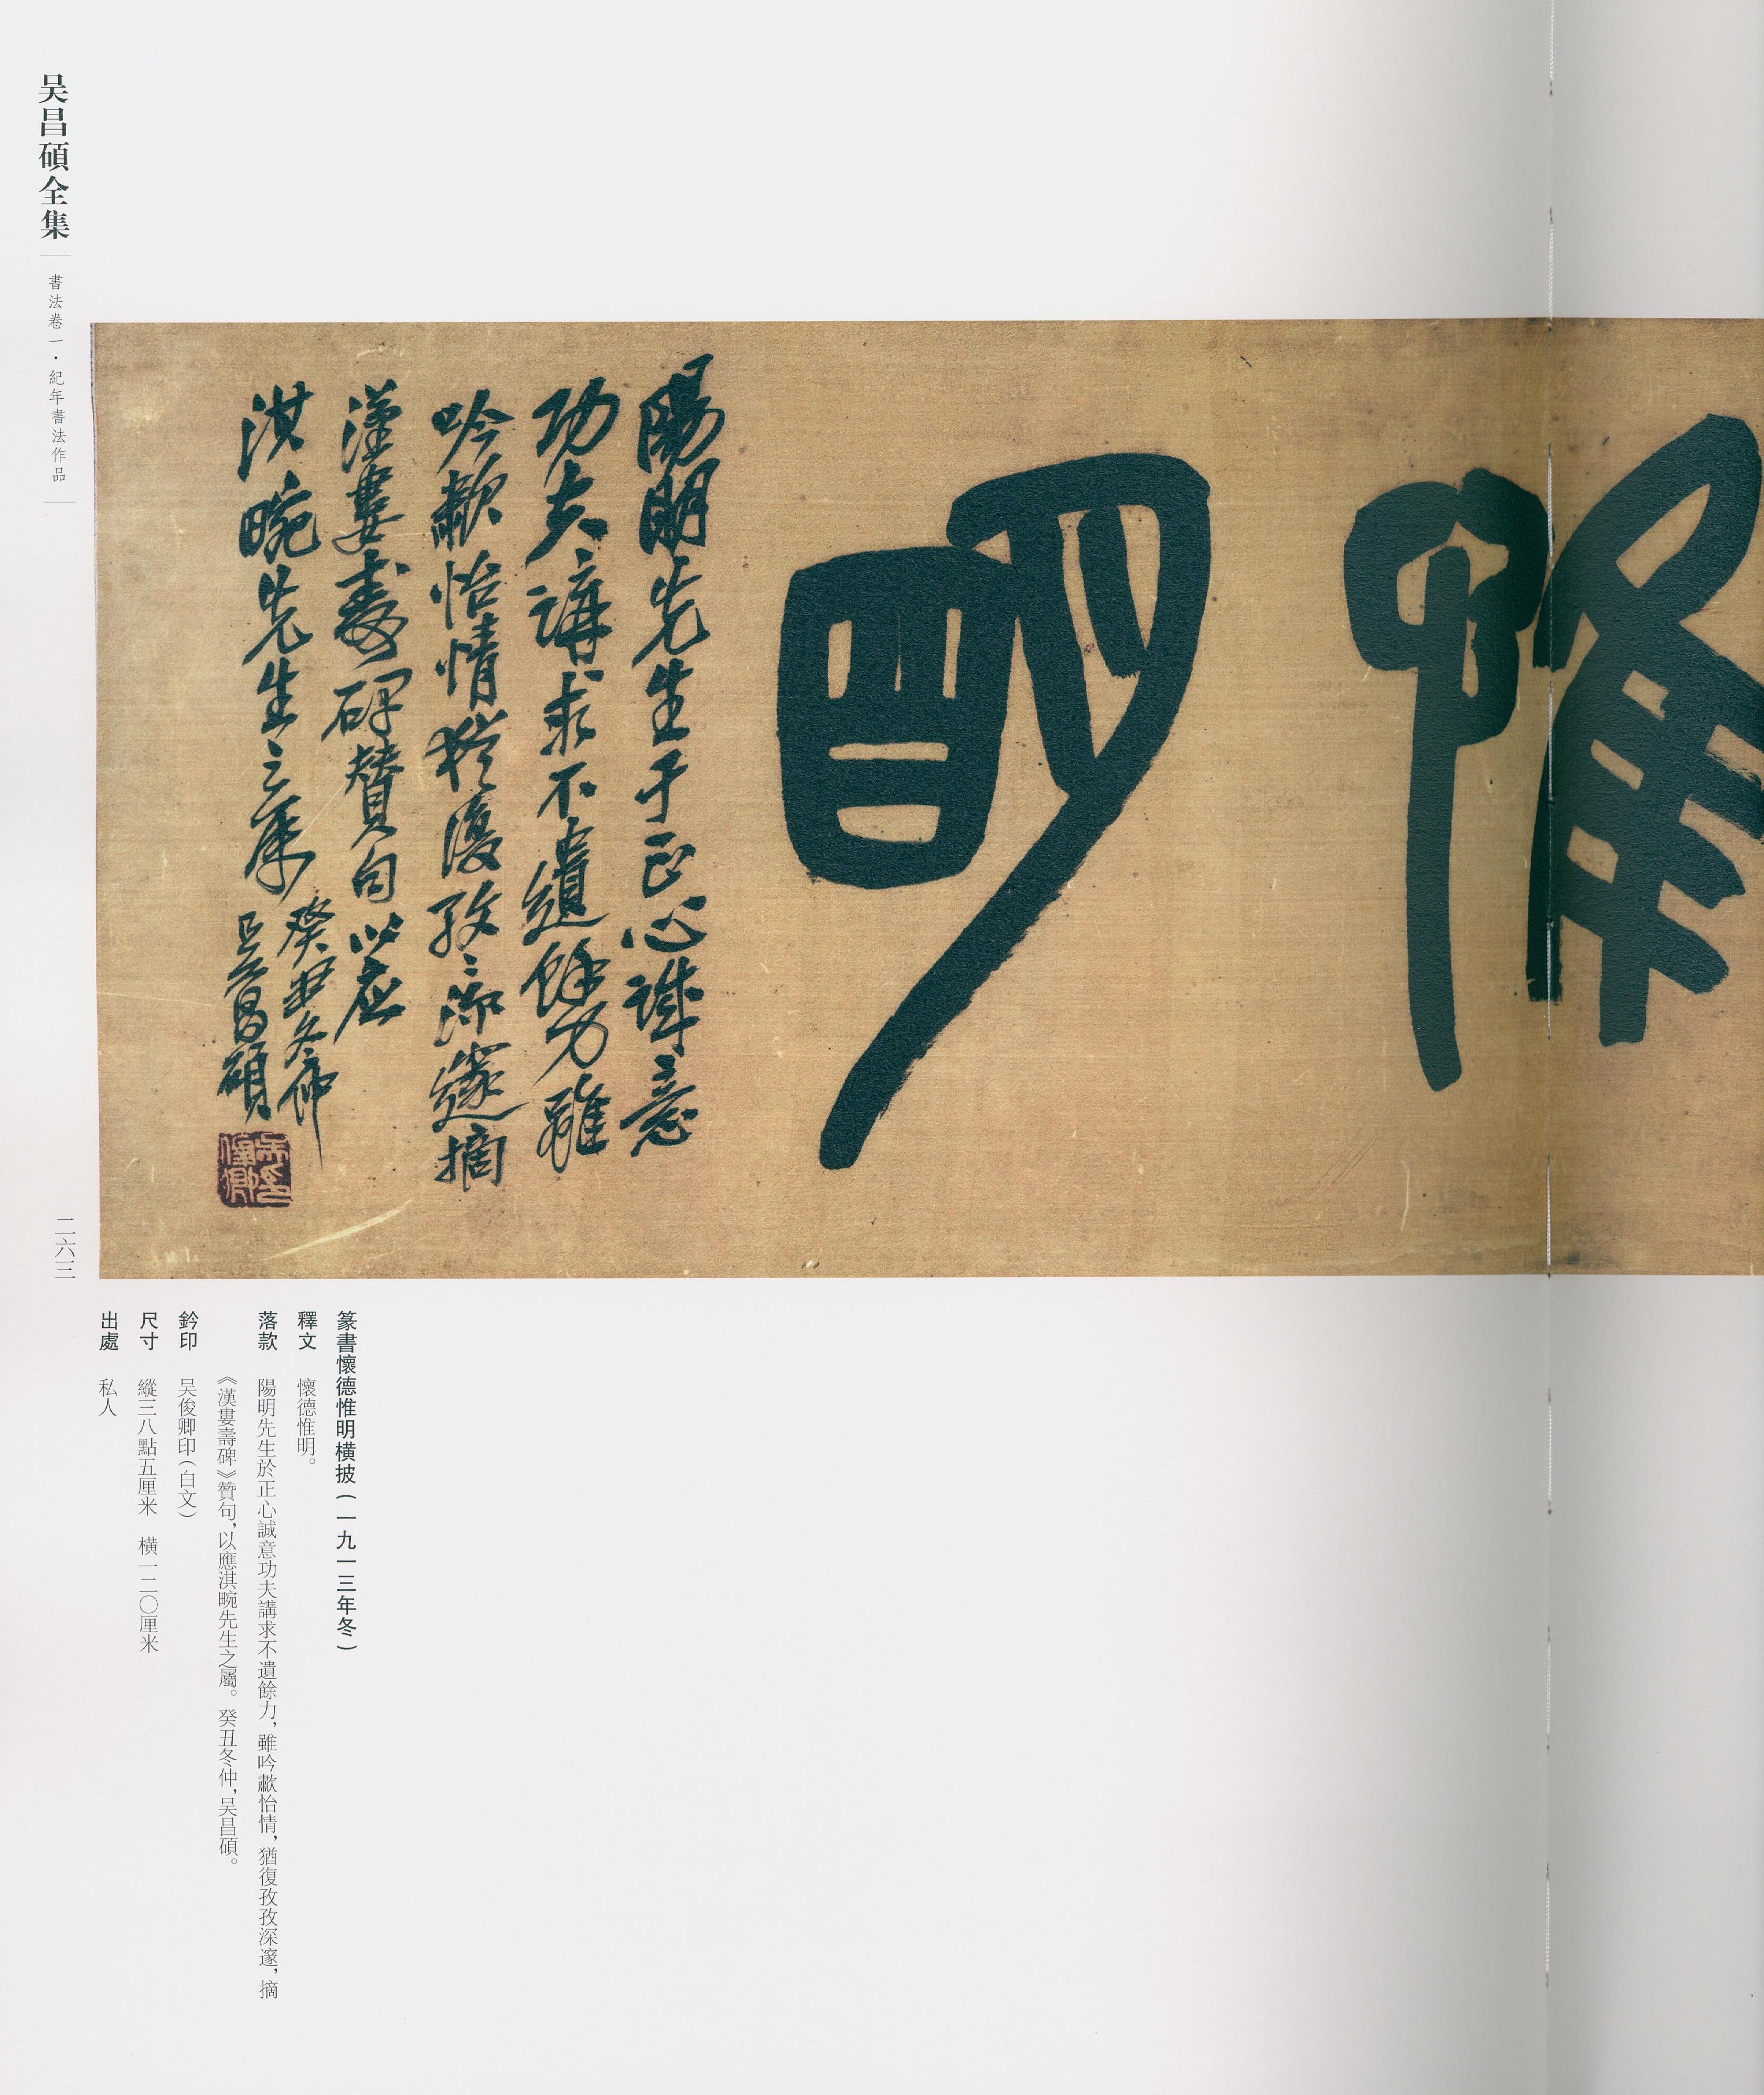 惟
明
陽明先生于正心誠意
功夫講求不遺餘力雖
吟歗怡情猶復孜〻深邃摘
漢婁壽碑賛句以應
淇畹先生之属
癸丑冬仲
吴昌碩
吴俊卿印
篆書懷德惟明橫披(一九一三年冬)
釋文 懷德惟明。
落款 陽明先生於正心誠意功夫講求不遺餘力,雖吟歗怡情,猶復孜孜深邃,摘
《漢婁壽碑》贊句,以應淇畹先生之屬。癸丑冬仲,吴昌碩。
鈐印 吴俊卿印(白文)
尺寸 縱三八點五厘米 橫一二〇厘米
出處 私人
吴昌碩全集
書法卷一・紀年書法作品
二六三